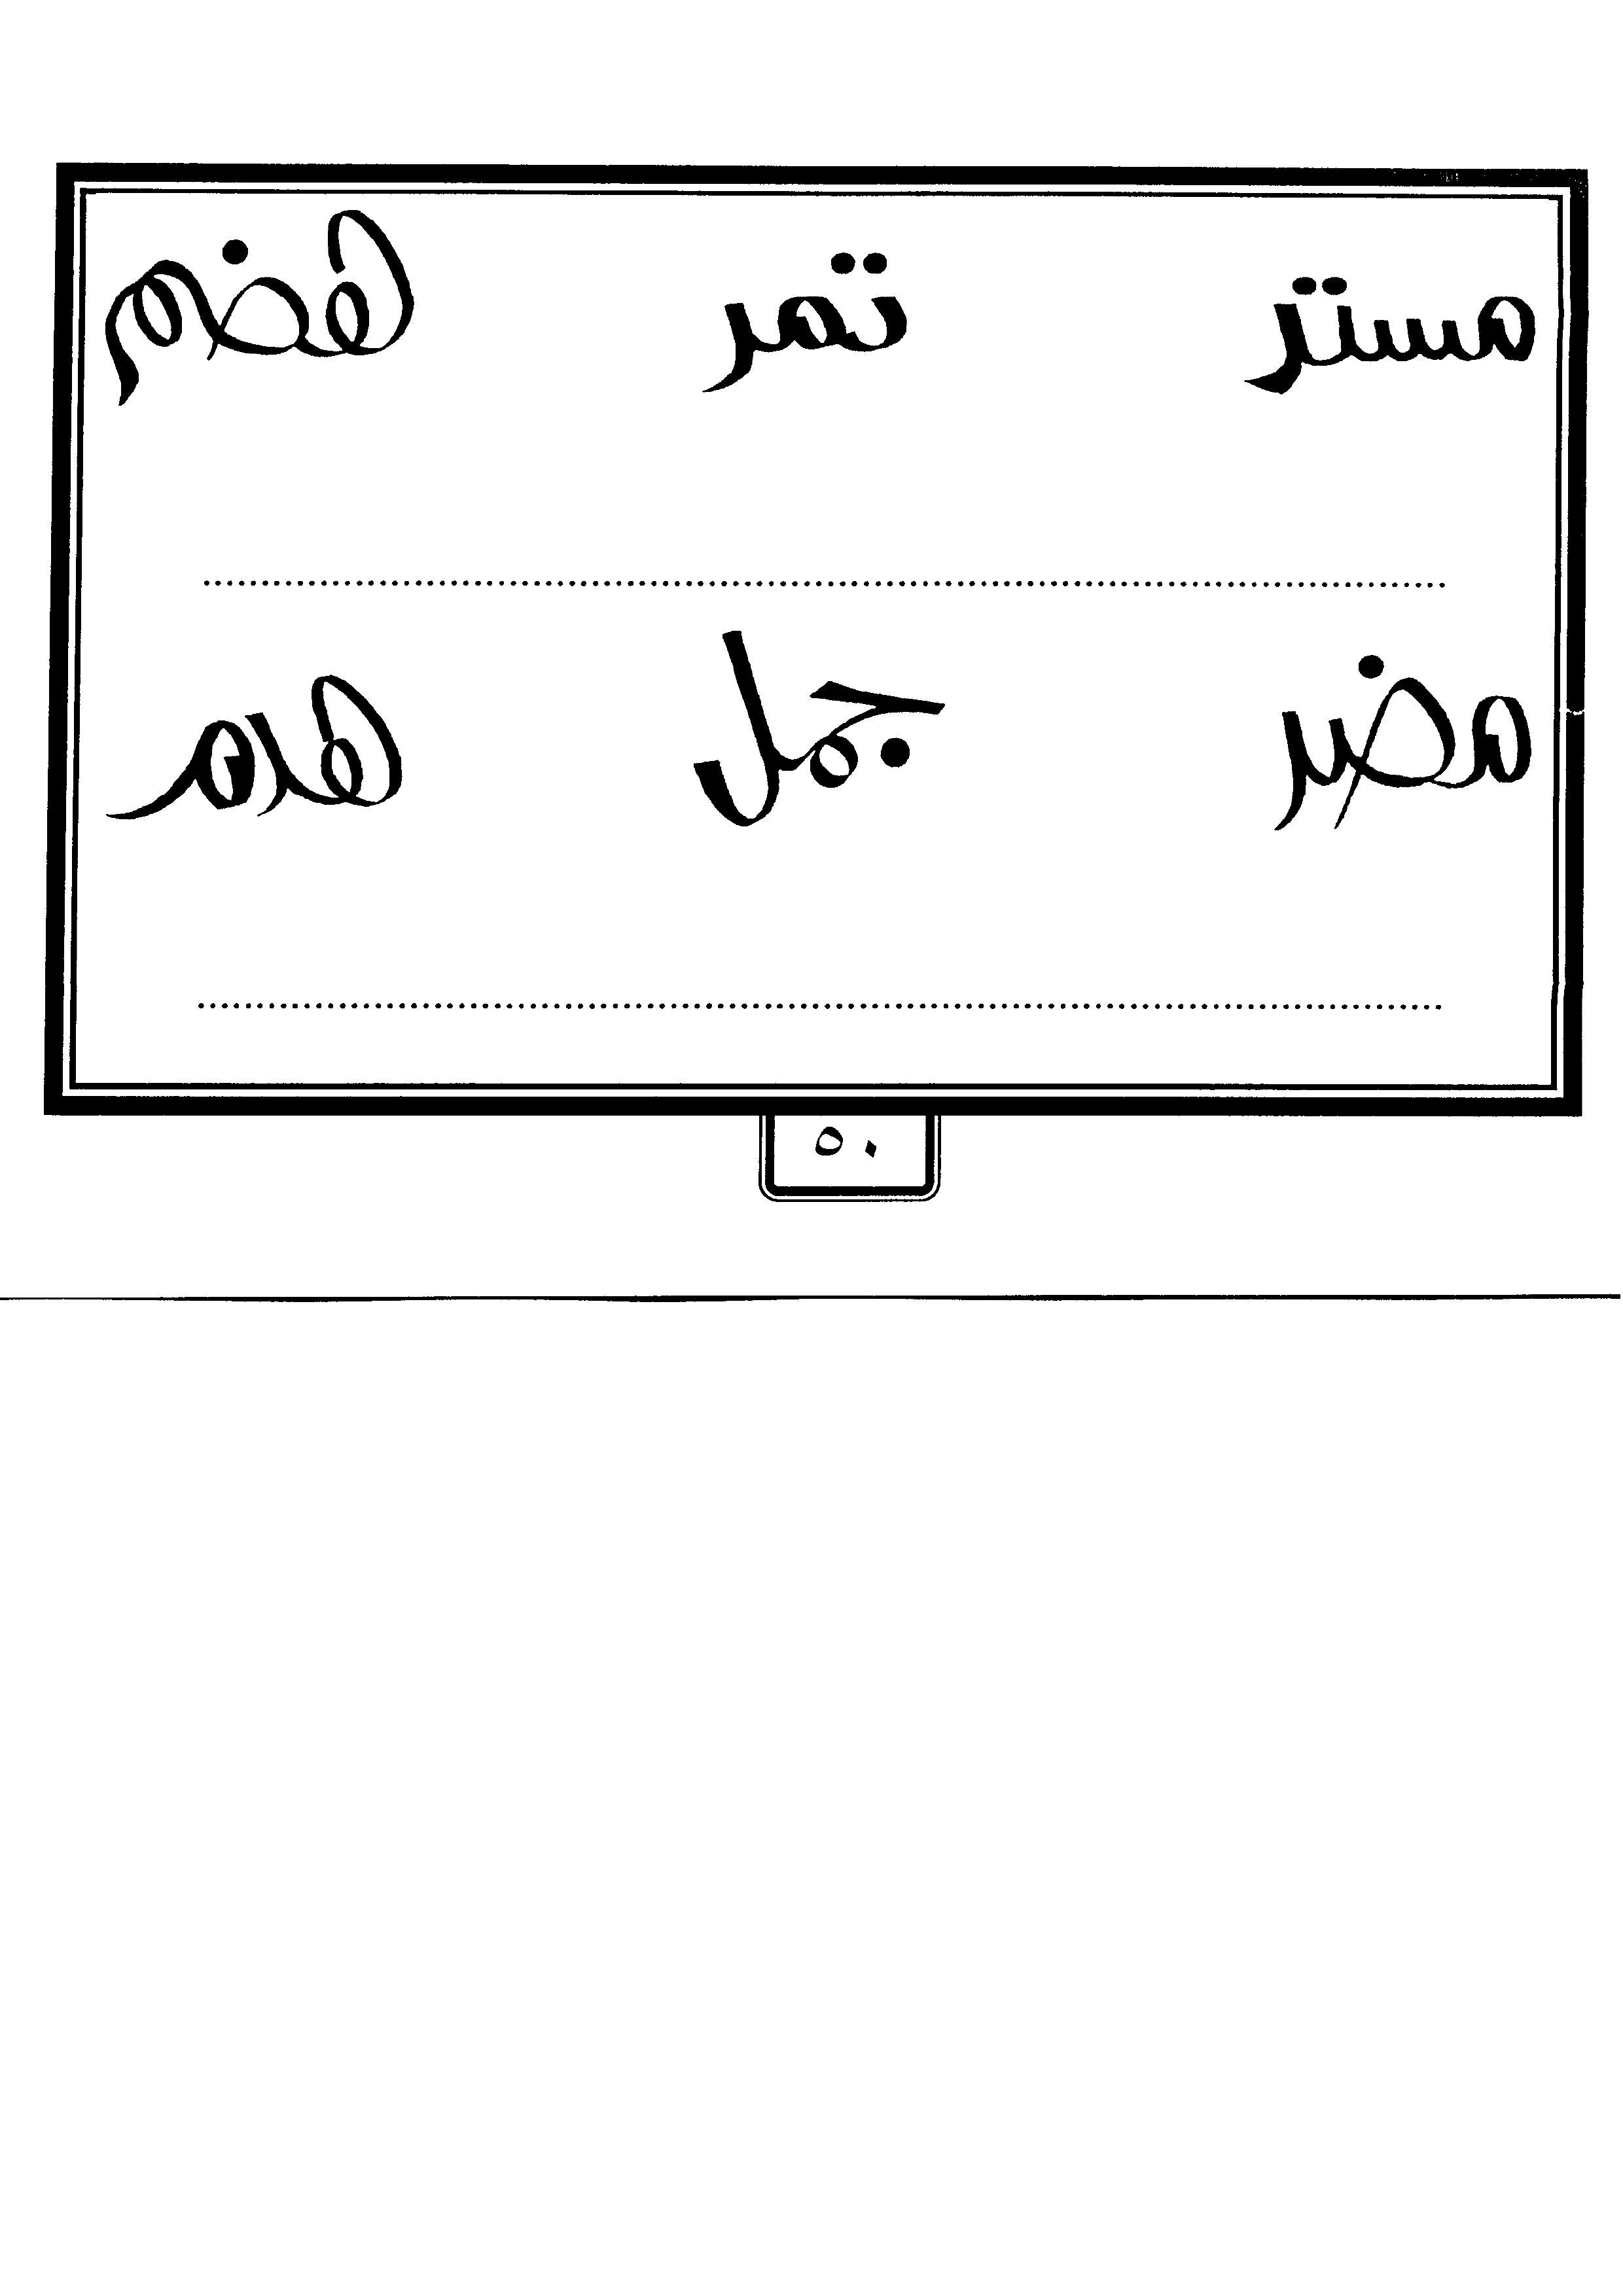 مستر تمر هضم
مضر جمل هدم
٥٠